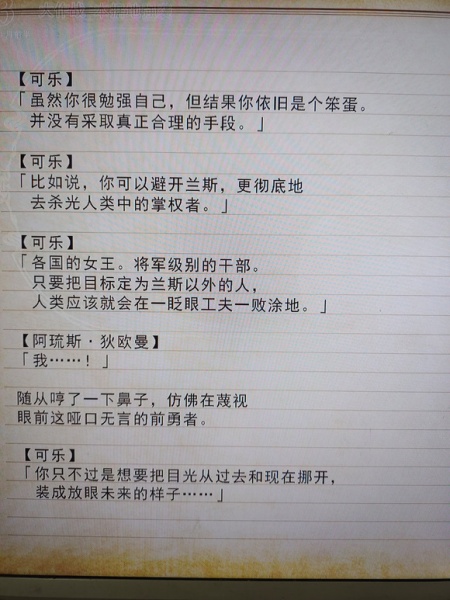 【可乐】
「虽然你很勉强自己，但结果你依旧是个笨蛋。
并没有采取真正合理的手段。」
【可乐】
「比如说，你可以避开兰斯，更彻底地
去杀光人类中的掌权者。」
【可乐】
「各国的女王。将军级别的干部。
只要把目标定为兰斯以外的人，
人类应该就会在一眨眼工夫一败涂地。」
【阿琉斯·狄欧曼】
「我……！」
随从哼了一下鼻子，仿佛在蔑视
眼前这哑口无言的前勇者。
【可乐】
「你只不过是想要把目光从过去和现在挪开，
装成放眼未来的样子……」